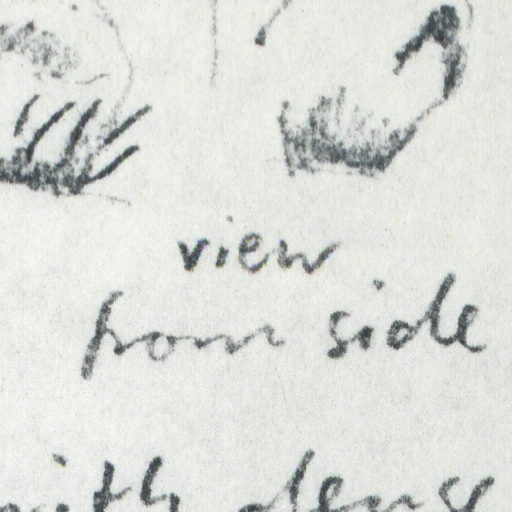 view
from side
with dense